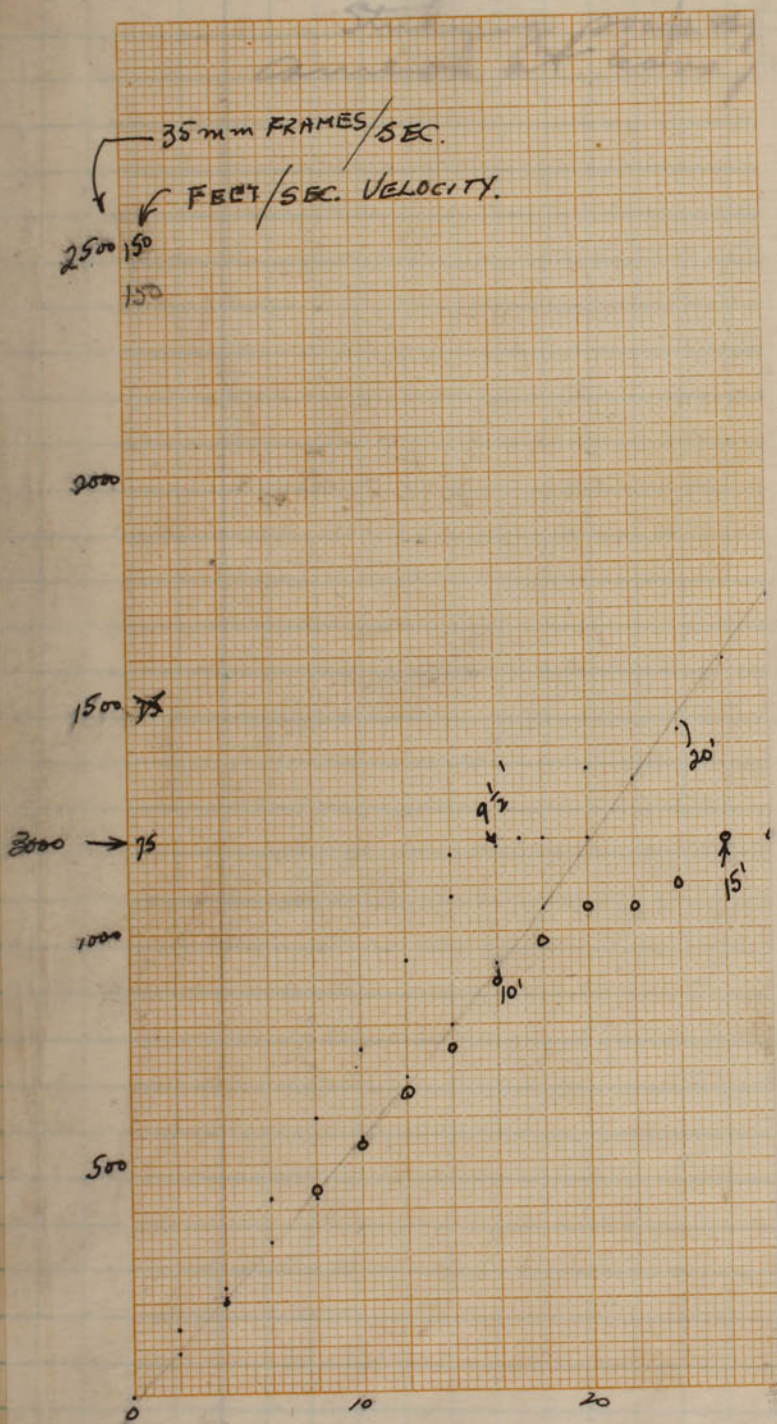 35mm FRAMES/SEC.
FEET/SEC. VELOCITY.
2500 150
150
2000
1500 75
20'
9 1/2'
3000 → 75
15'
1000
10'
500
0 10 20